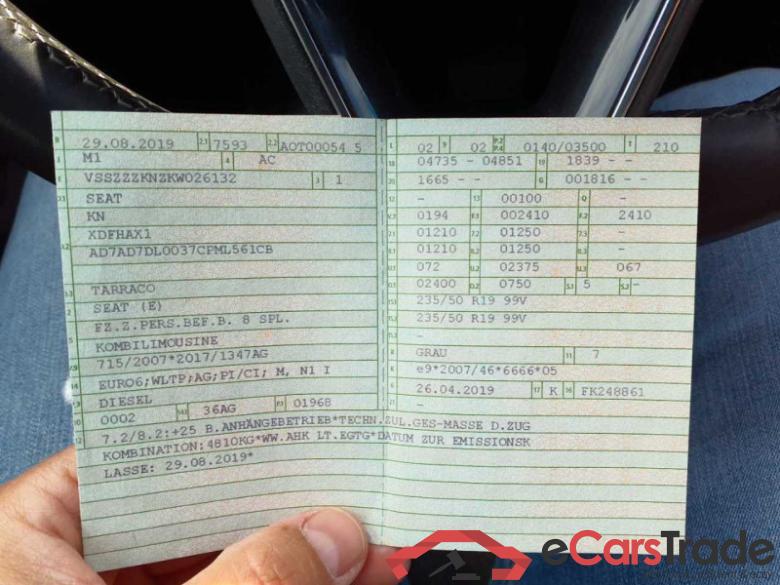 29.08.2019 2.1 7593 2.2 AOT00054 5
M1 4 AC
VSSZZZKNZKW026132 3 1
SEAT
KN
XDFHAX1
AD7AD7DL0037CPML561CB
TARRACO
SEAT (E)
FZ.Z.PERS.BEF.B. 8 SPL.
KOMBILIMOUSINE
715/2007*2017/1347AG
EURO6;WLTP;AG;PI/CI; M, N1 I
DIESEL
0002 36AG 01968
7.2/8.2:+25 B.ANHÄNGEBETRIEB*TECHN.ZUL.GES-MASSE D.ZUG
KOMBINATION:4810KG*WW.AHK LT.EGTG*DATUM ZUR EMISSIONSK
LASSE: 29.08.2019*
02 9 02 P.2 P.4 0140/03500 T 210
18 04735 - 04851 19 1839 - -
20 1665 - - G 001816 - -
12 - 13 00100 Q -
V.7 0194 F.1 002410 F.2 2410
7.1 01210 7.2 01250 7.3 -
8.1 01210 8.2 01250 8.3 -
U.1 072 U.2 02375 U.3 067
O.1 02400 O.2 0750 S.1 5 S.2 -
15.1 235/50 R19 99V
15.2 235/50 R19 99V
15.3 -
R GRAU 11 7
K e9*2007/46*6666*05
6 26.04.2019 17 K 16 FK248861
21 -
eCarsTrade